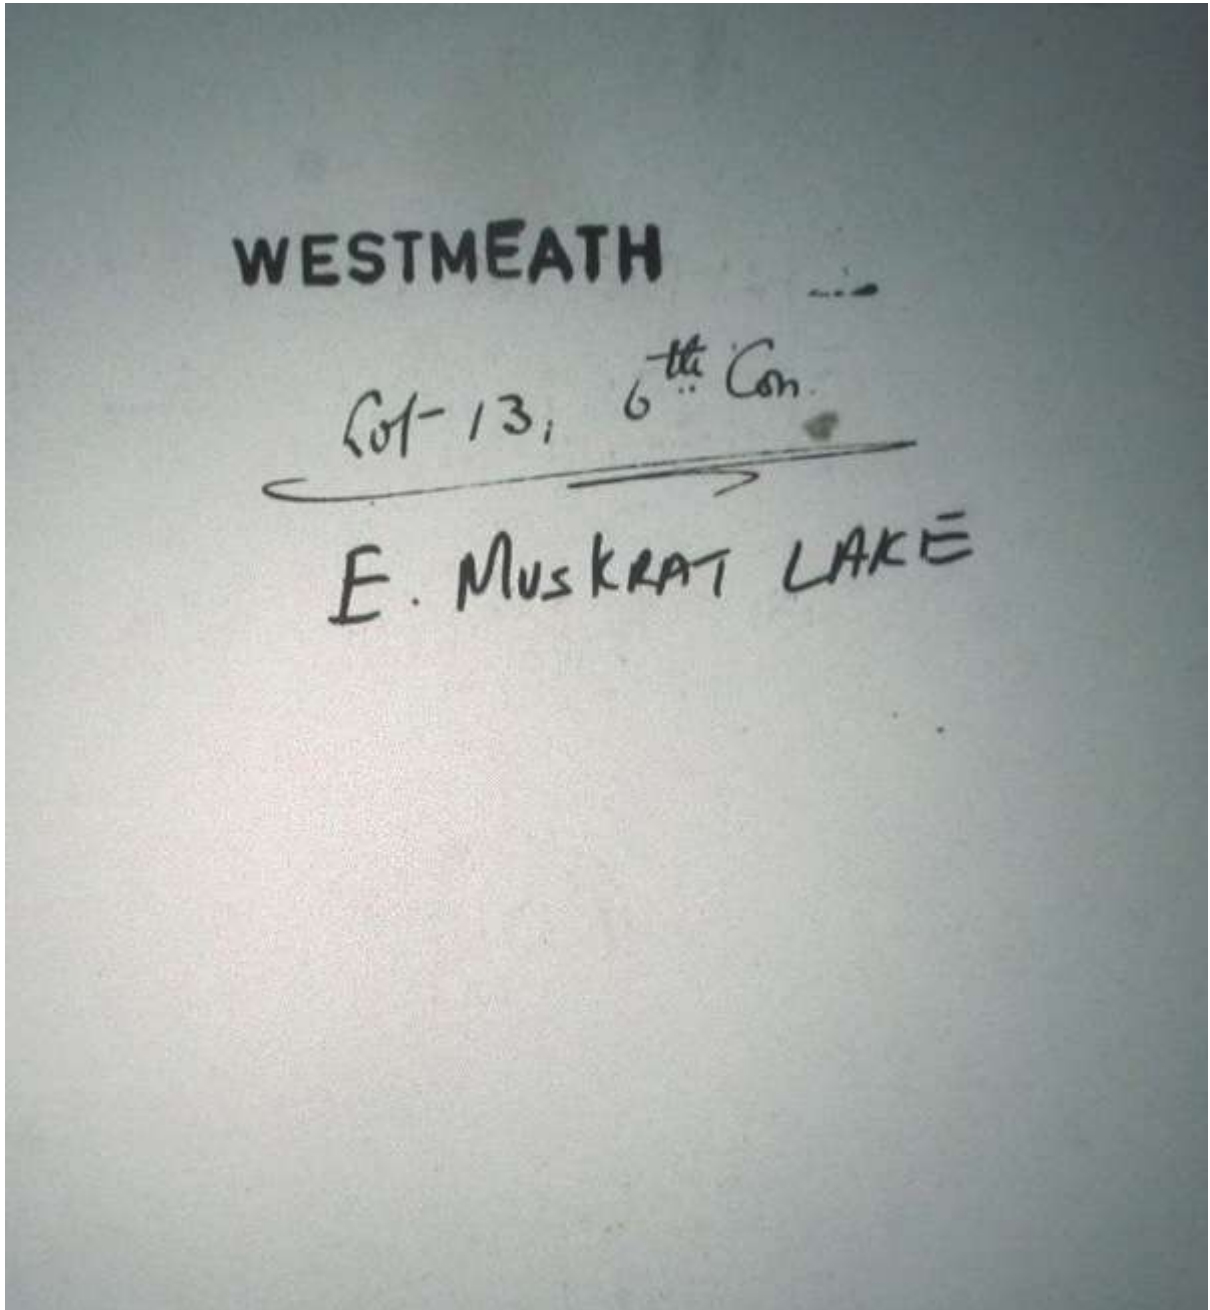 WESTMEATH
Lot 13, 6th Con.
E. MUSKRAT LAKE